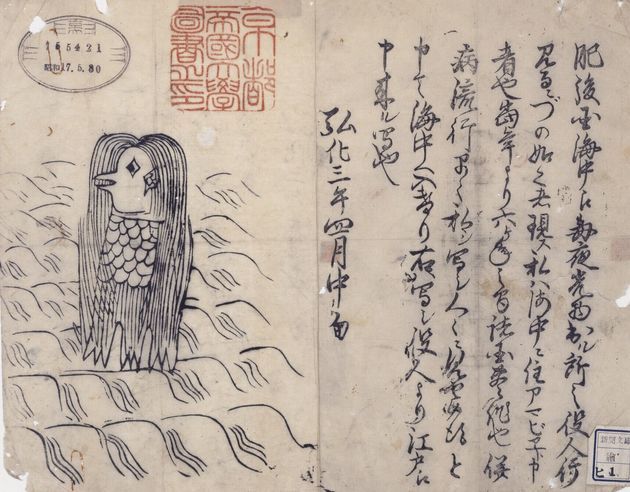 肥後国海中え毎夜光物出ル所之役人行
見るニづの如く者現ス私ハ海中ニ住アマビヱト申
者也当年より六ケ年之間諸国豊作也併
病流行早々私ヲ写シ人々ニ見セ候得と
申て海中へ入けり右写シ役人より江戸え
申来ル写也
弘化三年四月中旬
京都
帝國大學
圖書之印
165421
昭和17.5.30